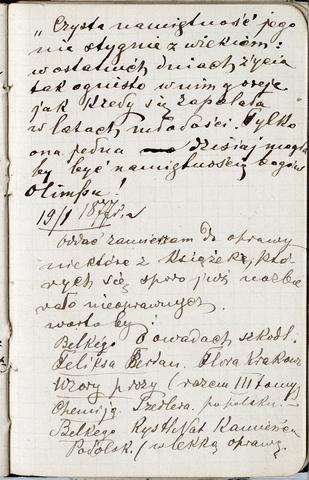 „Czysta namiętność jego
nie stygnie z wiekiem:
w ostatnich dniach życia
tak ognisto w nim goreje
jak kiedy się zapalała
w latach młodości. Tylko
ona jedna dzisiaj mogła
by być namiętnością bogów
Olimpu!
19/I 18
oddać zamierzam do oprawy
niektóre z książek, któ-
rych się sporo już nazbie-
rało nieoprawnych.
warto by:
Belkego O owadach szkodl.
Feliksa Berdau. Flora Krakow
Wzory prozy (razem III tomy)
Chemiją. po polsku. –
Belkego Rys Hist Nat Kamieńca
Podolsk. (w lekką oprawę.